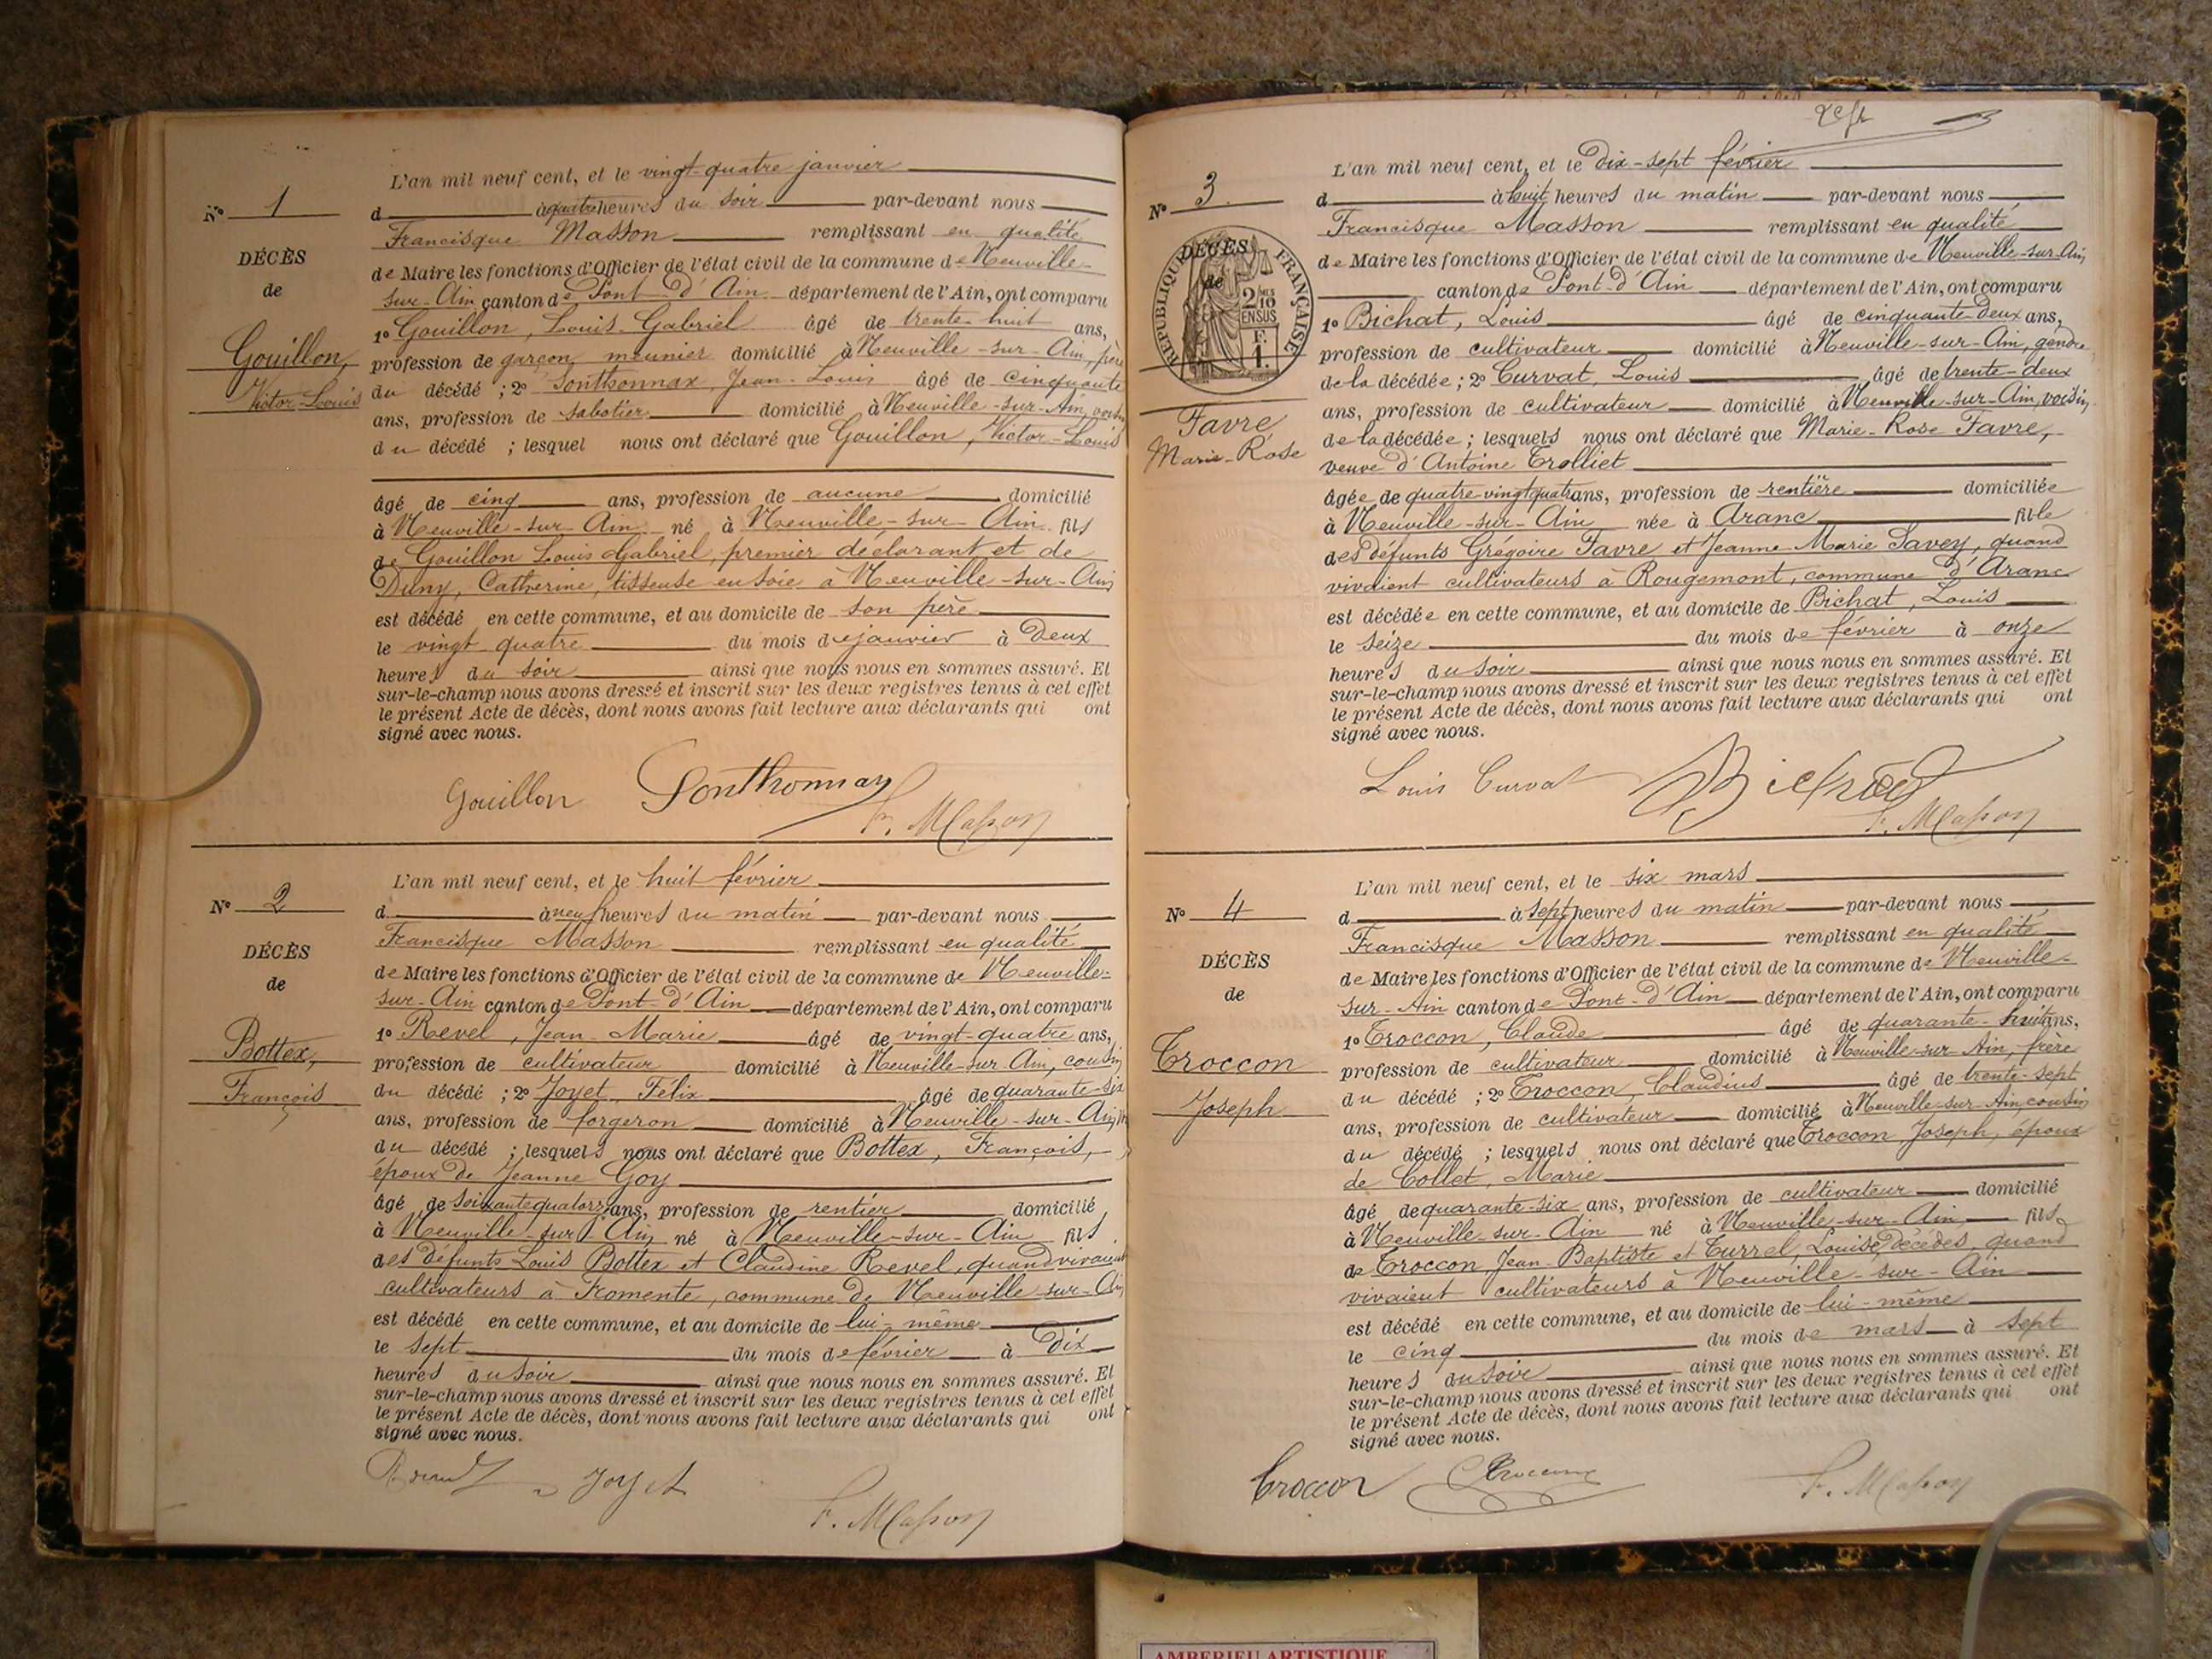 L'an mil neuf cent, et le vingt-quatre janvier
N° 1
d à quatre heures du soir par-devant nous
Francisque Masson remplissant en qualité
DÉCÈS
de Maire les fonctions d'Officier de l'état civil de la commune de Neuville-
de
sur-Ain canton de Pont-d'Ain département de l'Ain, ont comparu
1° Gouillon, Louis-Gabriel âgé de trente-huit ans,
Gouillon,
profession de garçon meunier domicilié à Neuville-sur-Ain, père
Victor-Louis
du décédé ; 2° Ponthonnax, Jean-Louis âgé de cinquante
ans, profession de sabotier domicilié à Neuville-sur-Ain, voisin
du décédé ; lesquel nous ont déclaré que Gouillon, Victor-Louis
âgé de cinq ans, profession de aucune domicilié
à Neuville-sur-Ain né à Neuville-sur-Ain fils
de Gouillon Louis Gabriel, premier déclarant et de
Catherine, tisseuse en soie à Neuville-sur-Ain
est décédé en cette commune, et au domicile de son père
le vingt quatre du mois de janvier à deux
heures du soir ainsi que nous nous en sommes assuré. Et
sur-le-champ nous avons dressé et inscrit sur les deux registres tenus à cet effet
le présent Acte de décès, dont nous avons fait lecture aux déclarants qui ont
signé avec nous.
Gouillon Ponthonnax
F. Masson
L'an mil neuf cent, et le huit février
N° 2
d à neuf heures du matin par-devant nous
Francisque Masson remplissant en qualité
DÉCÈS
de Maire les fonctions d'Officier de l'état civil de la commune de Neuville-
de
sur-Ain canton de Pont-d'Ain département de l'Ain, ont comparu
1° Revel, Jean-Marie âgé de vingt-quatre ans,
Bottex,
profession de cultivateur domicilié à Neuville-sur-Ain, cousin
François
du décédé ; 2° Joyet, Félix âgé de quarante-six
ans, profession de forgeron domicilié à Neuville-sur-Ain
du décédé ; lesquels nous ont déclaré que Bottex, François,
époux de Jeanne Goy
âgé de soixante quatorze ans, profession de rentier domicilié
à Neuville-sur-Ain né à Neuville-sur-Ain fils
des défunts Louis Bottex et Claudine Revel, quand vivaient
cultivateurs à Fromente, commune de Neuville-sur-Ain
est décédé en cette commune, et au domicile de lui-même
le sept du mois de février à dix
heures du soir ainsi que nous nous en sommes assuré. Et
sur-le-champ nous avons dressé et inscrit sur les deux registres tenus à cet effet
le présent Acte de décès, dont nous avons fait lecture aux déclarants qui ont
signé avec nous.
Joyet
F. Masson
L'an mil neuf cent, et le dix-sept février
N° 3
d à huit heures du matin par-devant nous
Francisque Masson remplissant en qualité
DÉCÈS
de
RÉPUBLIQUE FRANÇAISE
2 MES 10 EN SUS
F. 1.
de Maire les fonctions d'Officier de l'état civil de la commune de Neuville-sur-Ain,
canton de Pont-d'Ain département de l'Ain, ont comparu
1° Bichat, Louis âgé de cinquante-deux ans,
profession de cultivateur domicilié à Neuville-sur-Ain, gendre
de la décédée ; 2° Curvat, Louis âgé de trente-deux
Favre
ans, profession de cultivateur domicilié à Neuville-sur-Ain, voisin
Marie-Rose
de la décédée ; lesquels nous ont déclaré que Marie-Rose Favre,
veuve d'Antoine Trolliet
âgée de quatre-vingt quatre ans, profession de rentière domiciliée
à Neuville-sur-Ain née à Aranc fille
des défunts Grégoire Favre et Jeanne Marie Savey, quand
vivaient cultivateurs à Rougemont, commune d'Aranc
est décédée en cette commune, et au domicile de Bichat, Louis
le seize du mois de février à onze
heures du soir ainsi que nous nous en sommes assuré. Et
sur-le-champ nous avons dressé et inscrit sur les deux registres tenus à cet effet
le présent Acte de décès, dont nous avons fait lecture aux déclarants qui ont
signé avec nous.
Louis Curvat Bichat
F. Masson
L'an mil neuf cent, et le six mars
N° 4
d à sept heures du matin par-devant nous
Francisque Masson remplissant en qualité
DÉCÈS
de Maire les fonctions d'Officier de l'état civil de la commune de Neuville-
de
sur-Ain canton de Pont-d'Ain département de l'Ain, ont comparu
1° Troccon, Claude âgé de quarante-huit ans,
Troccon
profession de cultivateur domicilié à Neuville-sur-Ain, frère
Joseph
du décédé ; 2° Troccon, Claudius âgé de trente-sept
ans, profession de cultivateur domicilié à Neuville-sur-Ain, cousin
du décédé ; lesquels nous ont déclaré que Troccon, Joseph, époux
de Collet, Marie
âgé de quarante-six ans, profession de cultivateur domicilié
à Neuville-sur-Ain né à Neuville-sur-Ain fils
de Troccon, Jean-Baptiste et Turrel, Louise, décédés, quand
vivaient cultivateurs à Neuville-sur-Ain
est décédé en cette commune, et au domicile de lui-même
le cinq du mois de mars à sept
heures du soir ainsi que nous nous en sommes assuré. Et
sur-le-champ nous avons dressé et inscrit sur les deux registres tenus à cet effet
le présent Acte de décès, dont nous avons fait lecture aux déclarants qui ont
signé avec nous.
Troccon Troccon F. Masson
AMBERIEU ARTISTIQUE